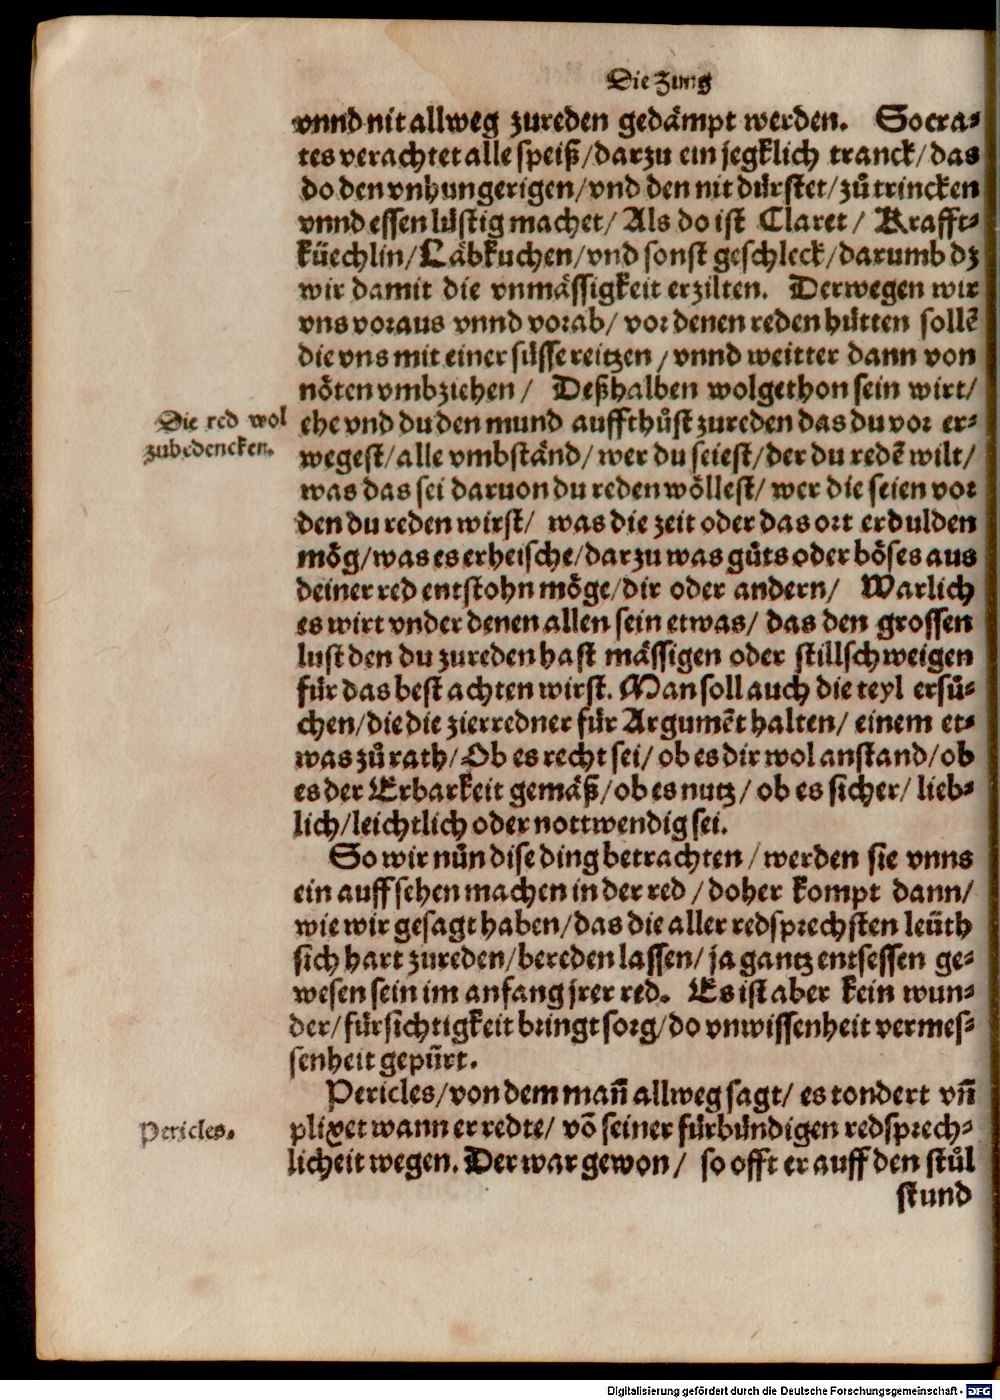 Die Zung
vnnd nit allweg zureden gedämpt werden. Socra-
tes verachtet alle speiß/darzu ein jegklich tranck/das
do den vnhungerigen/vnd den nit dürstet/zůtrincken
vnnd essen lüstig machet/ Als do ist Claret/ Krafft-
küechlin/Läbkuchen/vnd sonst geschleck/darumb dz
wir damit die vnmässigkeit erzilten. Derwegen wir
vns voraus vnnd vorab/ vor denen reden hütten sollē
die vns mit einer süsse reitzen/vnnd weitter dann von
nöten vmbziehen/ Deßhalben wolgethon sein wirt/
Die red wol
zubedencken.
ehe vnd du den mund auffthůst zureden das du vor er-
wegest/alle vmbständ/wer du seiest/der du redē wilt/
was das sei daruon du reden wöllest/wer die seien vor
den du reden wirst/ was die zeit oder das ort erdulden
mög/was es erheische/darzu was gůts oder böses aus
deiner red entstohn möge/dir oder andern/ Warlich
es wirt vnder denen allen sein etwas/ das den grossen
lust den du zureden hast mässigen oder stillschweigen
für das best achten wirst. Man soll auch die teyl ersů-
chen/die die zierredner für Argumēt halten/ einem et-
was zů rath/Ob es recht sei/ob es dir wol anstand/ob
es der Erbarkeit gemäß/ob es nutz/ ob es sicher/ lieb-
lich/leichtlich oder nottwendig sei.
So wir nůn dise ding betrachten/werden sie vnns
ein auffsehen machen in der red/doher kompt dann/
wie wir gesagt haben/das die aller redsprechsten leüth
sich hart zureden/bereden lassen/ja gantz entsessen ge-
wesen sein im anfang jrer red. Es ist aber kein wun-
der/fürsichtigkeit bringt sorg/do vnwissenheit vermes-
senheit gepürt.
Pericles/von dem mañ allweg sagt/ es tondert vñ
Pericles.
plixet wann er redte/ vō seiner fürbündigen redsprech-
licheit wegen. Der war gewon/ so offt er auff den stůl
stund
Digitalisierung gefördert durch die Deutsche Forschungsgemeinschaft - DFG